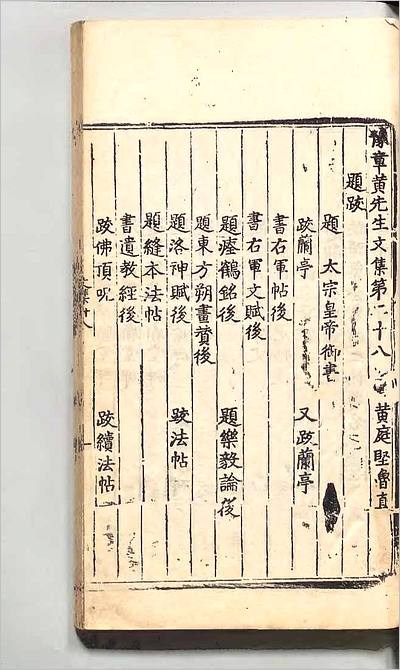 豫章黃先生文集第二十八 黃庭堅魯直
題跋
題 太宗皇帝御書
跋蘭亭 又跋蘭亭
書右軍帖後
書右軍文賦後
題瘞鶴銘後 題樂毅論後
題東方朔畫贊後
題洛神賦後 跋法帖
題縫本法帖
書遺教經後
跋佛頂呪 跋續法帖